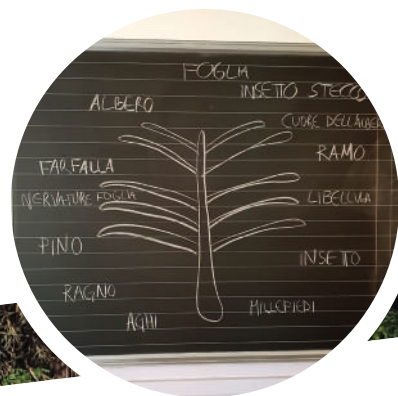 FOGLIA
INSETTO STECCO
ALBERO
CUORE DELL'ALBERO
RAMO
FARFALLA
NERVATURE FOGLIA
LIBELLULA
PINO
INSETTO
RAGNO
AGHI
MILLEPIEDI